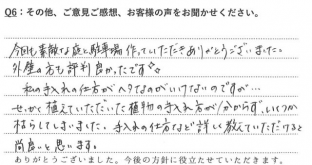 Q6:その他、ご意見ご感想、お客様の声をお聞かせください。
今回も素敵な庭と駐車場、作っていただきありがとうございました。
外壁の方も評判良かったです☆
私の手入れの仕方がヘタなのがいけないのですが…
せっかく植えていただいた植物の手入れ方が分からず、いくつか
枯らしてしまいました。手入れの仕方など詳しく教えていただけると
尚良いと思います。
ありがとうございました。今後の方針に役立たせていただきます。